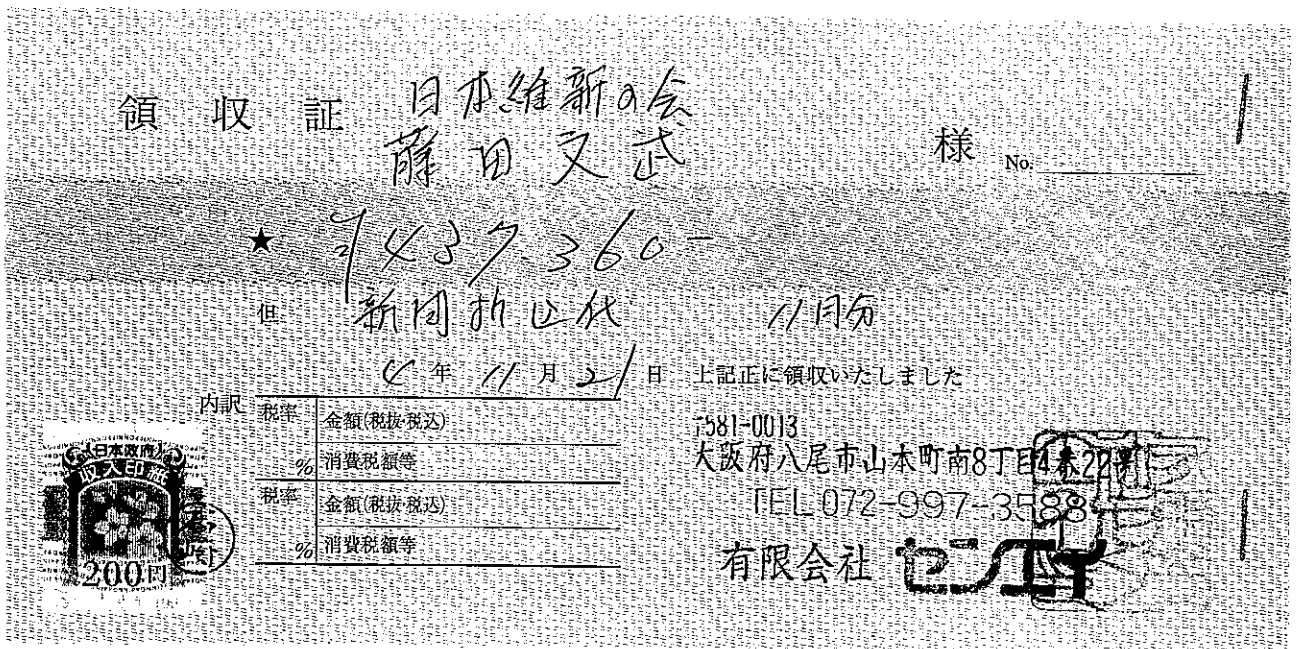 領収証 日本維新の会
藤田文武 様 No.
★ ¥437.360-
但 新聞折込代 11月分
4年11月21日 上記正に領収いたしました
内訳 税率 金額(税抜・税込)
% 消費税額等
税率 金額(税抜・税込)
% 消費税額等
日本政府
収入印紙
200円
〒581-0013
大阪府八尾市山本町南8丁目4番22号
TEL 072-997-3588
有限会社 センエイ